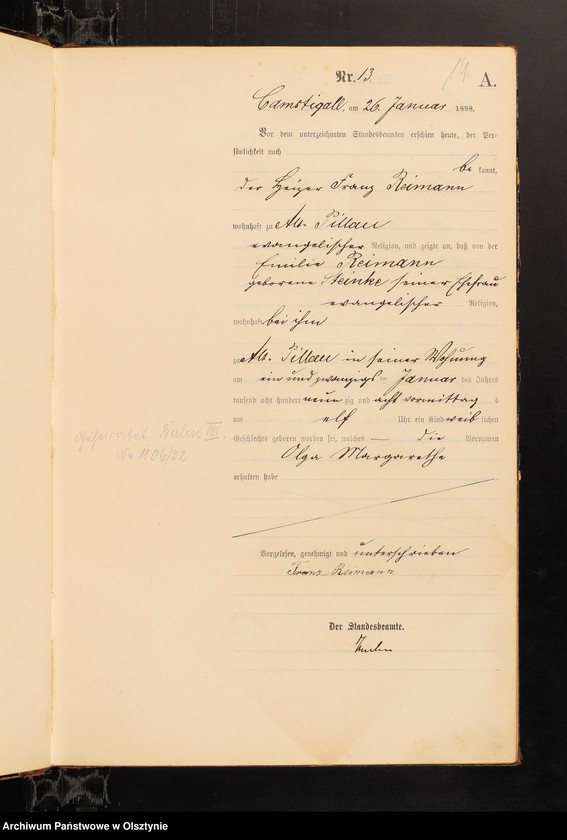 Nr. 13
14
A.
Camstigall, am 26. Januar 1898.
Vor dem unterzeichneten Standesbeamten erschien heute, der Per-
sönlichkeit nach
be kannt,
der Heizer Franz Reimann
wohnhaft zu Alt-Pillau
evangelischer Religion, und zeigte an, daß von der
Emilie Reimann
geborene Steinke seiner Ehefrau
evangelischer Religion,
wohnhaft bei ihm
zu Alt-Pillau in seiner Wohnung
am ein und zwanzigsten Januar des Jahres
tausend acht hundert neun zig und acht vormittag s
um elf Uhr ein Kind weib lichen
Geschlechts geboren worden sei, welches — die Vornamen
Olga Margarethe
erhalten habe
Geheiratet Berlin VII
Nr. 1106/22
Vorgelesen, genehmigt und unterschrieben
Franz Reimann
Der Standesbeamte.
Archiwum Państwowe w Olsztynie